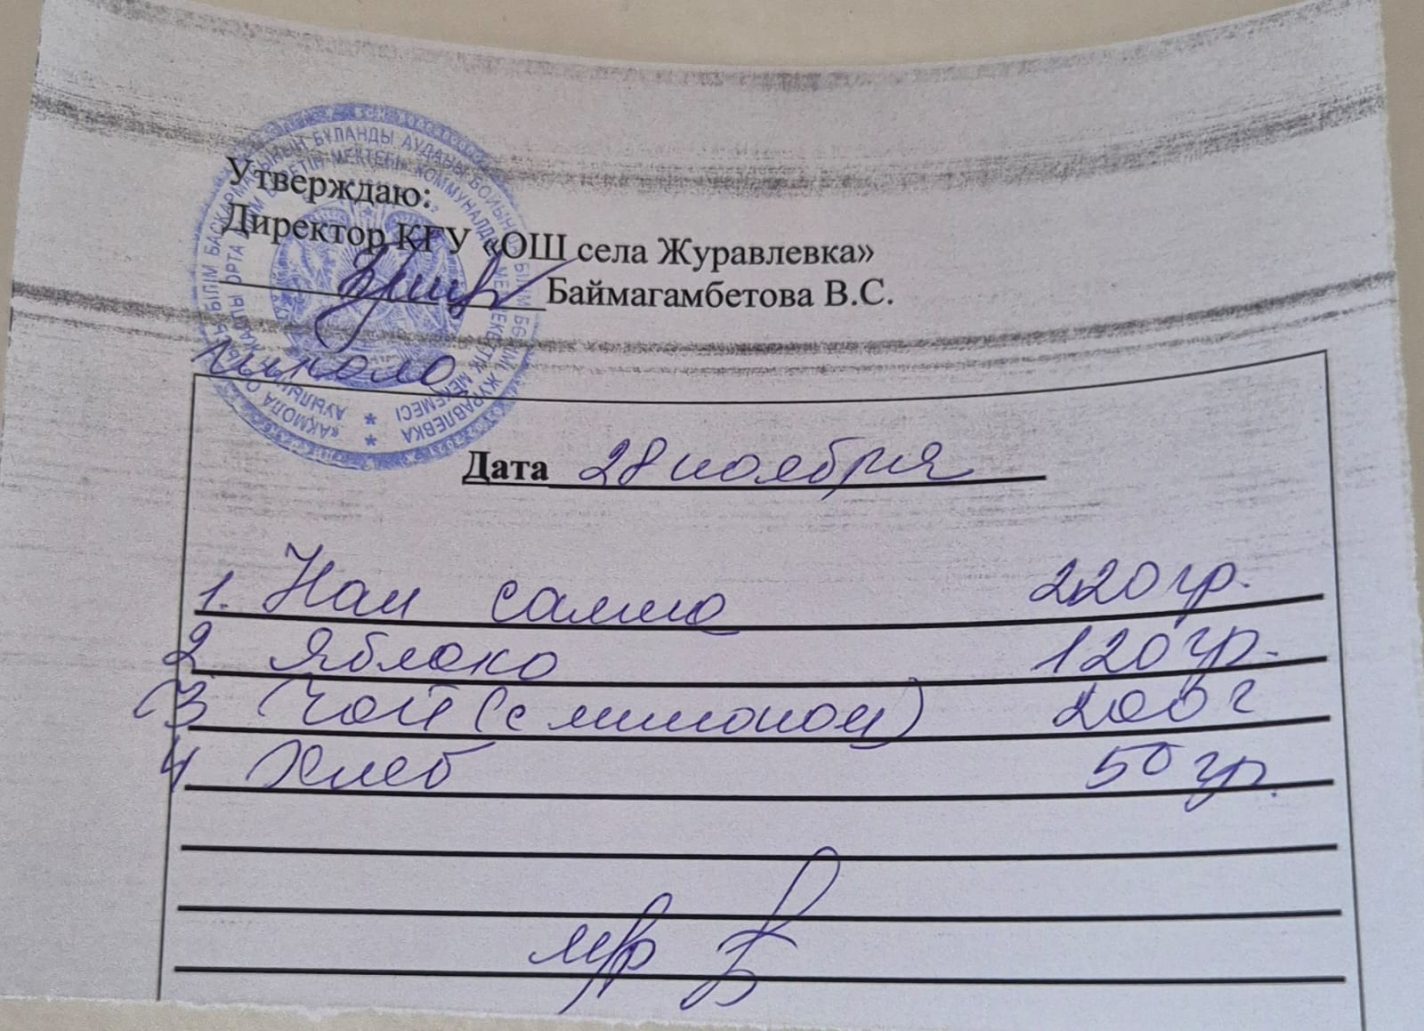 Утверждаю:
Директор КГУ «ОШ села Журавлевка»
Баймагамбетова В.С.
школа
Дата 28 ноября
1. Нан самса 220 гр.
2 Яблоко 120 гр.
3 Чай (с лимоном) 200 г
4 Хлеб 50 гр.
м/р